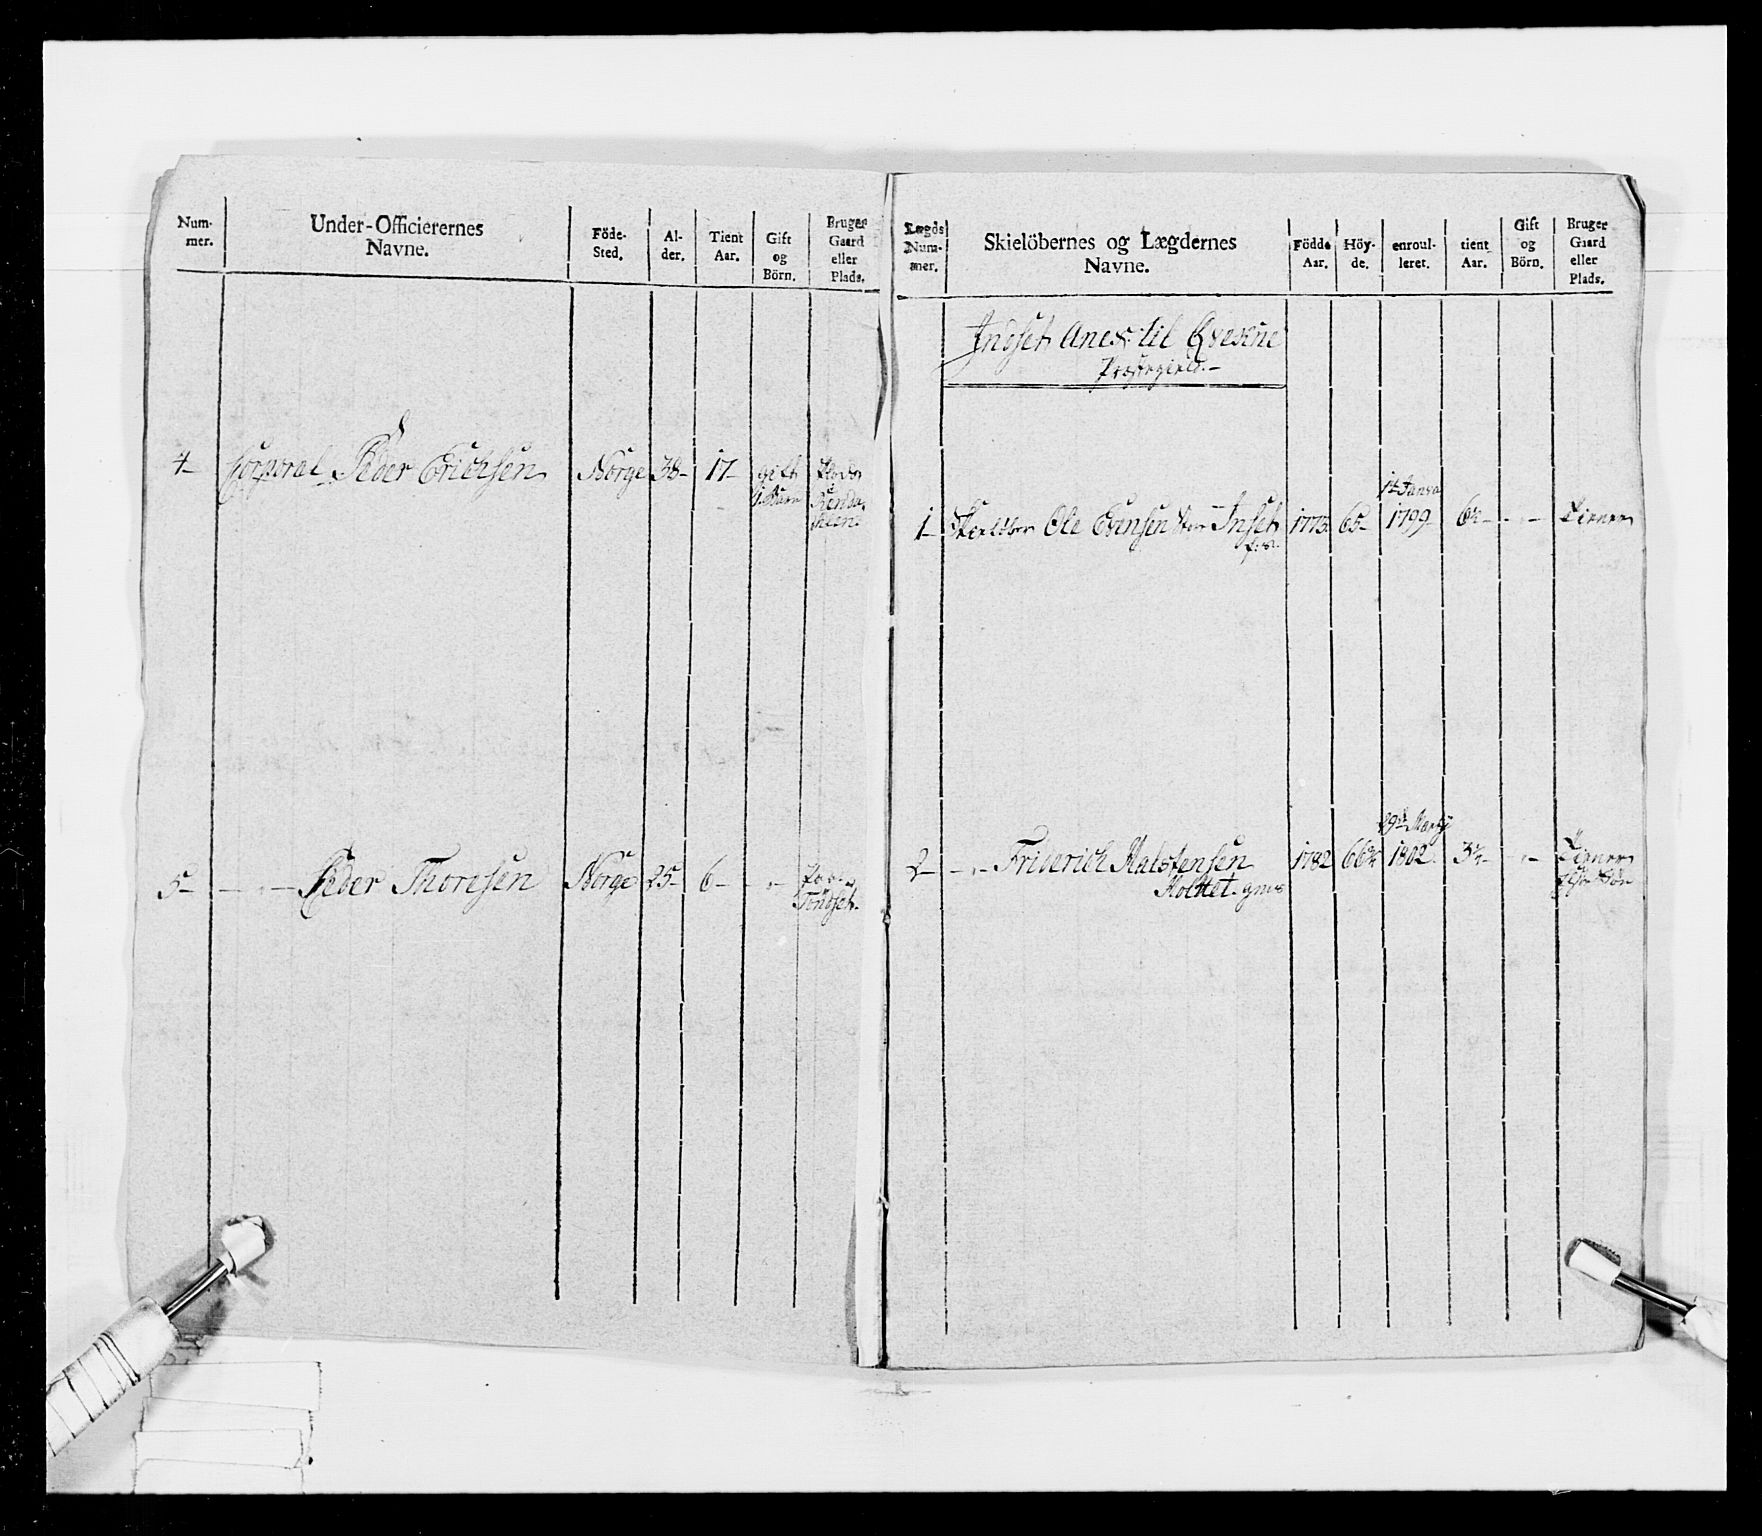 Num-
mer.
Under-Officierernes
Navne.
Föde-
Sted.
Al-
der.
Tient
Aar.
Gift
og
Börn.
Bruger
Gaard
eller
Plads.
4- Corporal Peder Erichsen Norge 38- 17- gift
1. Barn
5- - „ - Peder Thoresen Norge 25- 6- - „ -
Tönset.
Lægds
Num-
mer.
Skielöbernes og Lægdernes
Navne.
Födde
Aar.
Höy-
de.
enroul-
leret.
tient
Aar.
Gift
og
Börn.
Bruger
Gaard
eller
Plads.
Indset Anex til Qvekne
Præstegield.-
1- Skielöber Ole Evensen Inset 1773 65- 1799 - „ - Tiener
2- - „ - Friderich Halstensen 1782 1802 - „ - Tiener